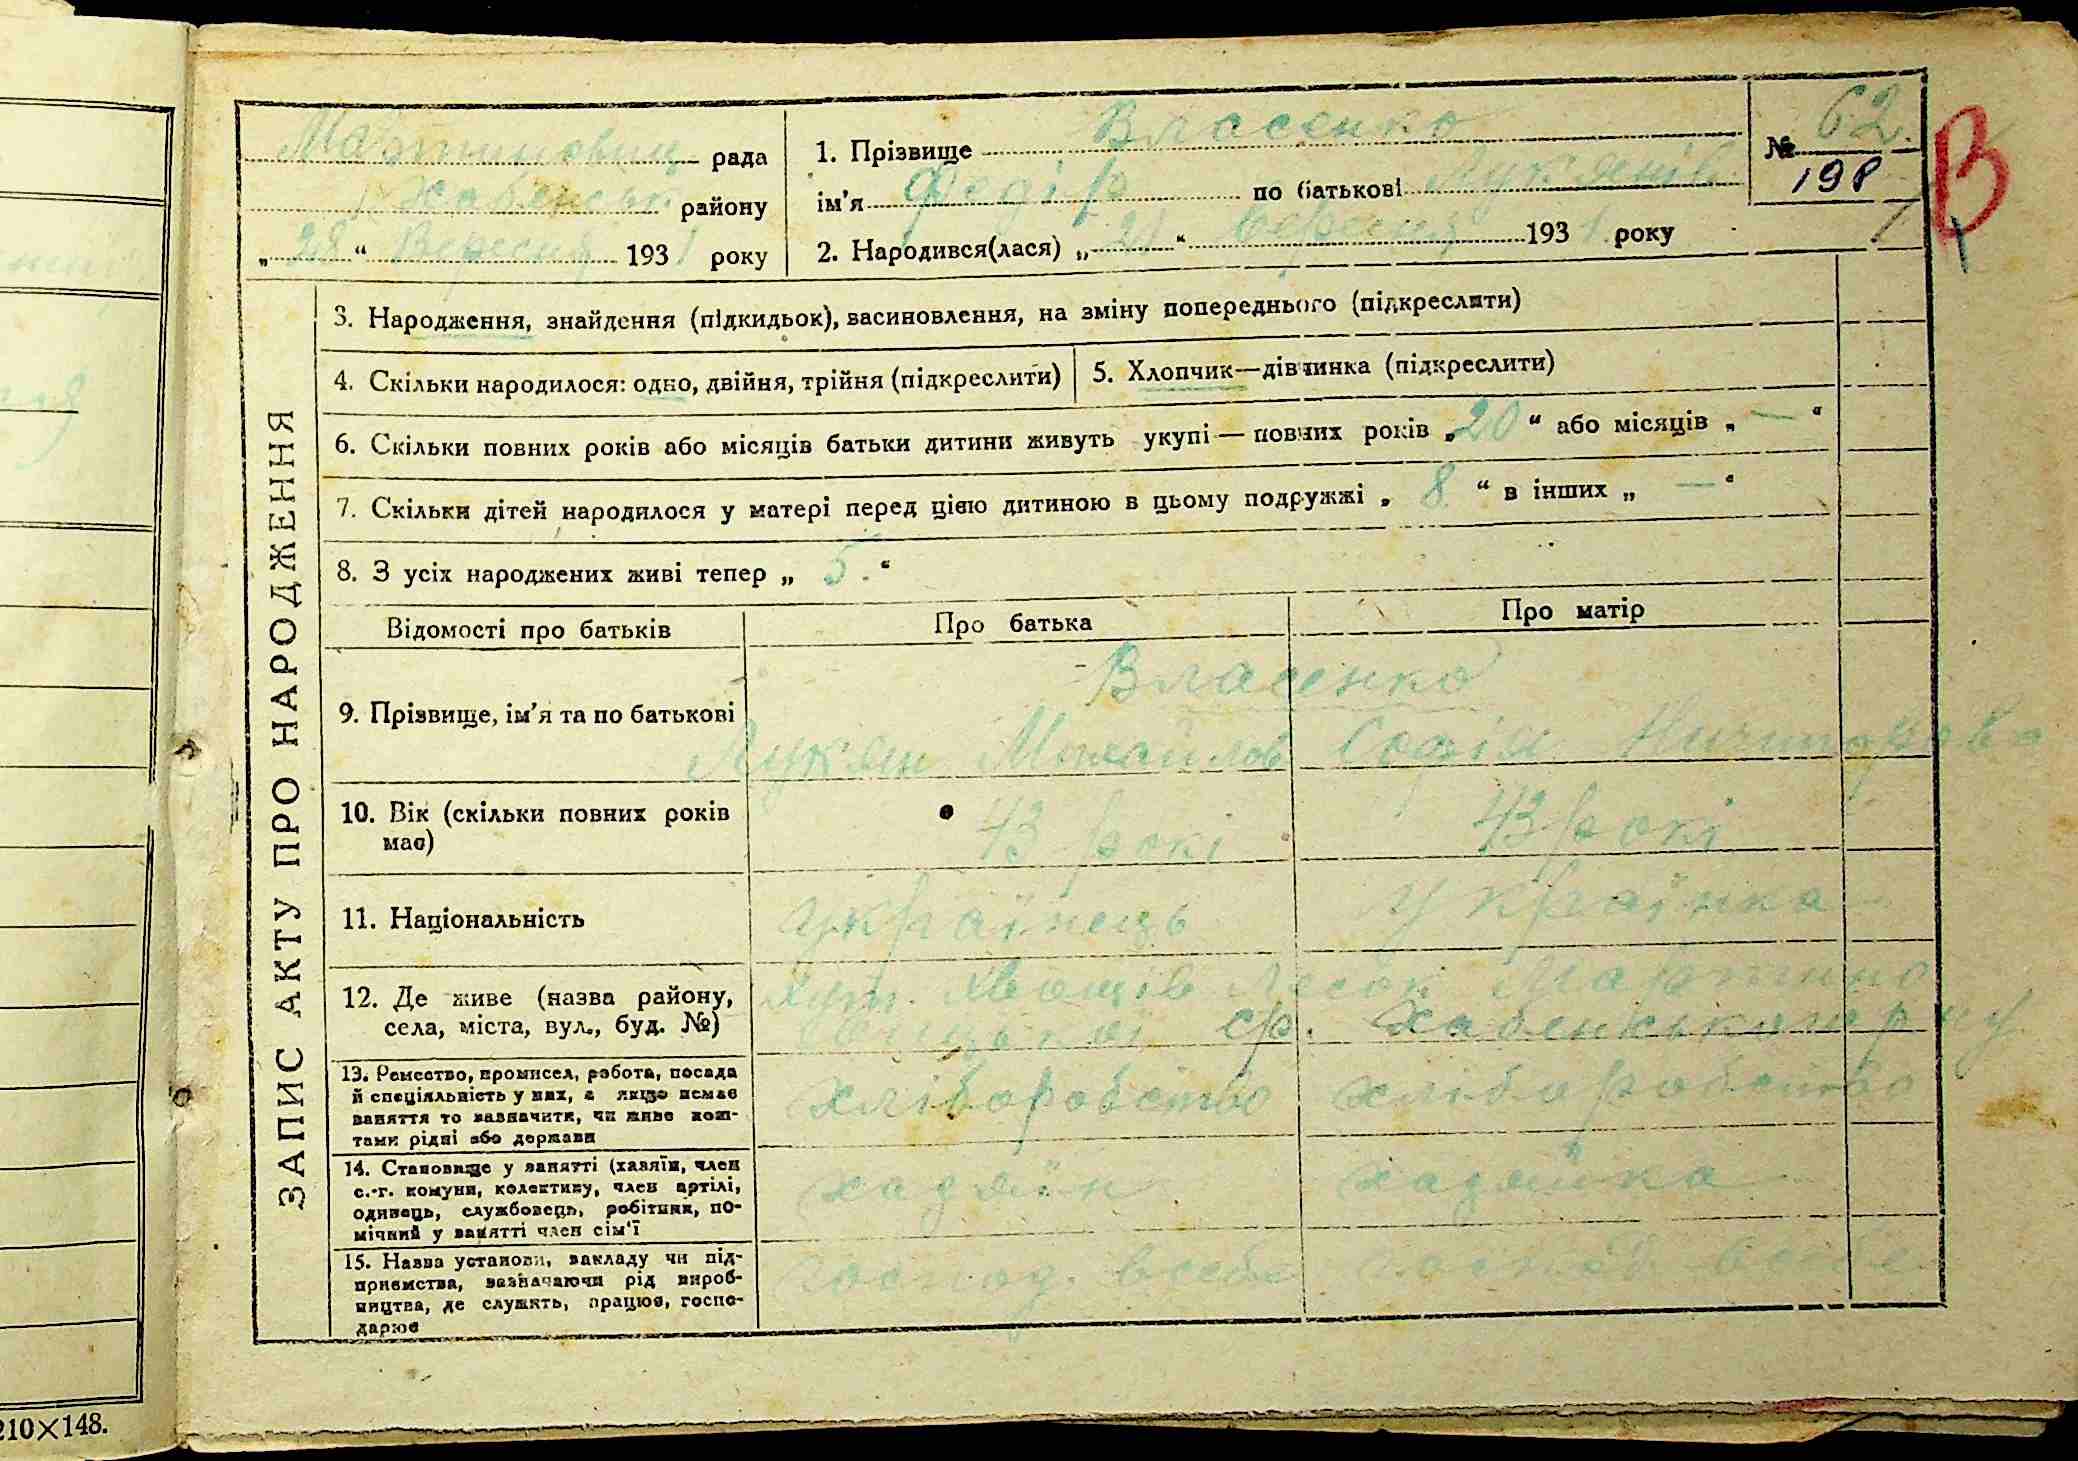 Мартинович рада
Хабенськ району
„28“ Вересня 1931 року
1. Прізвище Власенко
ім’я Федір по батькові Лукянів
2. Народився(лася) „21“ вересня 1931 року
№ 62.
198
В
ЗАПИС АКТУ ПРО НАРОДЖЕННЯ
3. Народження, знайдення (підкидьок), васиновлення, на зміну попереднього (підкреслити)
4. Скільки народилося: одно, двійня, трійня (підкреслити)
5. Хлопчик—дівчинка (підкреслити)
6. Скільки повних років або місяців батьки дитини живуть укупі — повних років „20“ або місяців „—“
7. Скільки дітей народилося у матері перед цією дитиною в цьому подружжі „8“ в інших „—“
8. З усіх народжених живі тепер „5.“
Відомості про батьків
Про батька
Про матір
9. Прізвище, ім’я та по батькові
Власенко
Лукян Михайлов Софія
10. Вік (скільки повних років
має)
43 рокі
43 рокі
11. Національність
українець
українка
12. Де живе (назва району,
села, міста, вул., буд. №)
хут. Хвощів Лесок Мартино
ср. Хабенського р-ну
13. Ремество, промисел, робота, посада
й спеціяльність у них, а якщо немає
заняття то зазначити, чи живе кош-
тами рідні або держави
хліборобство
хліборобство
14. Становище у занятті (хазяїн, член
с.-г. комуни, колективу, член артілі,
одинець, службовець, робітник, по-
мічний у занятті член сім’ї
хазяїн
хазяйка
15. Назва установи, закладу чи під-
приємства, зазначаючи рід вироб-
ництва, де служить, працює, госпо-
дарює
210×148.